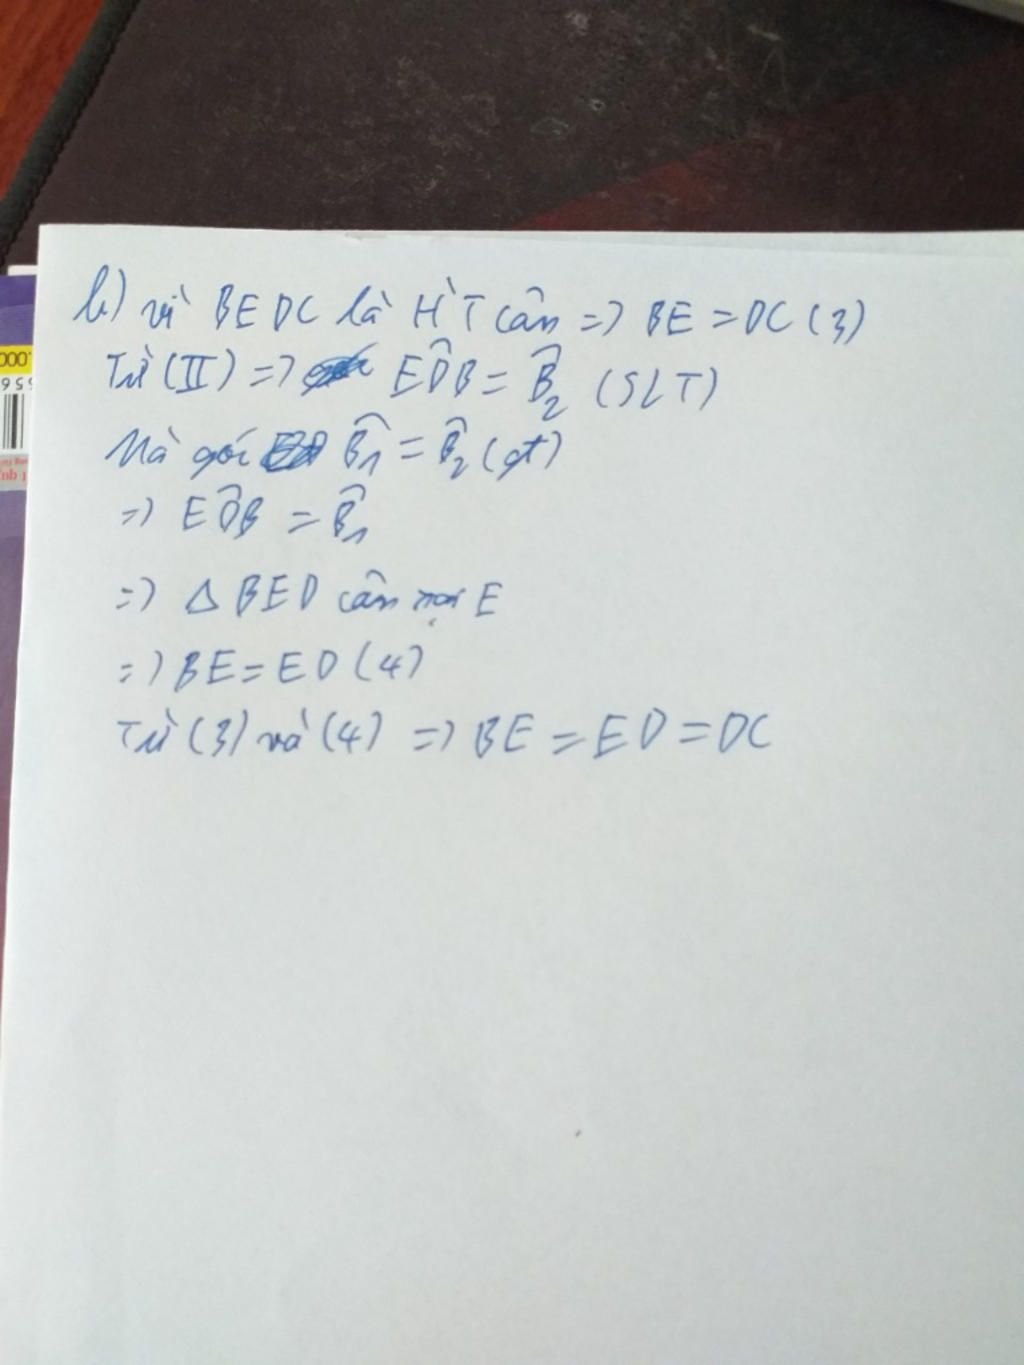 b) vì BEDC là HT cân => BE = DC (3)
Từ (II) => ED̂B = B̂₂ (SLT)
Mà góc B̂₁ = B̂₂ (gt)
=> ED̂B = B̂₁
=> Δ BED cân tại E
=> BE = ED (4)
Từ (3) và (4) => BE = ED = DC
.000